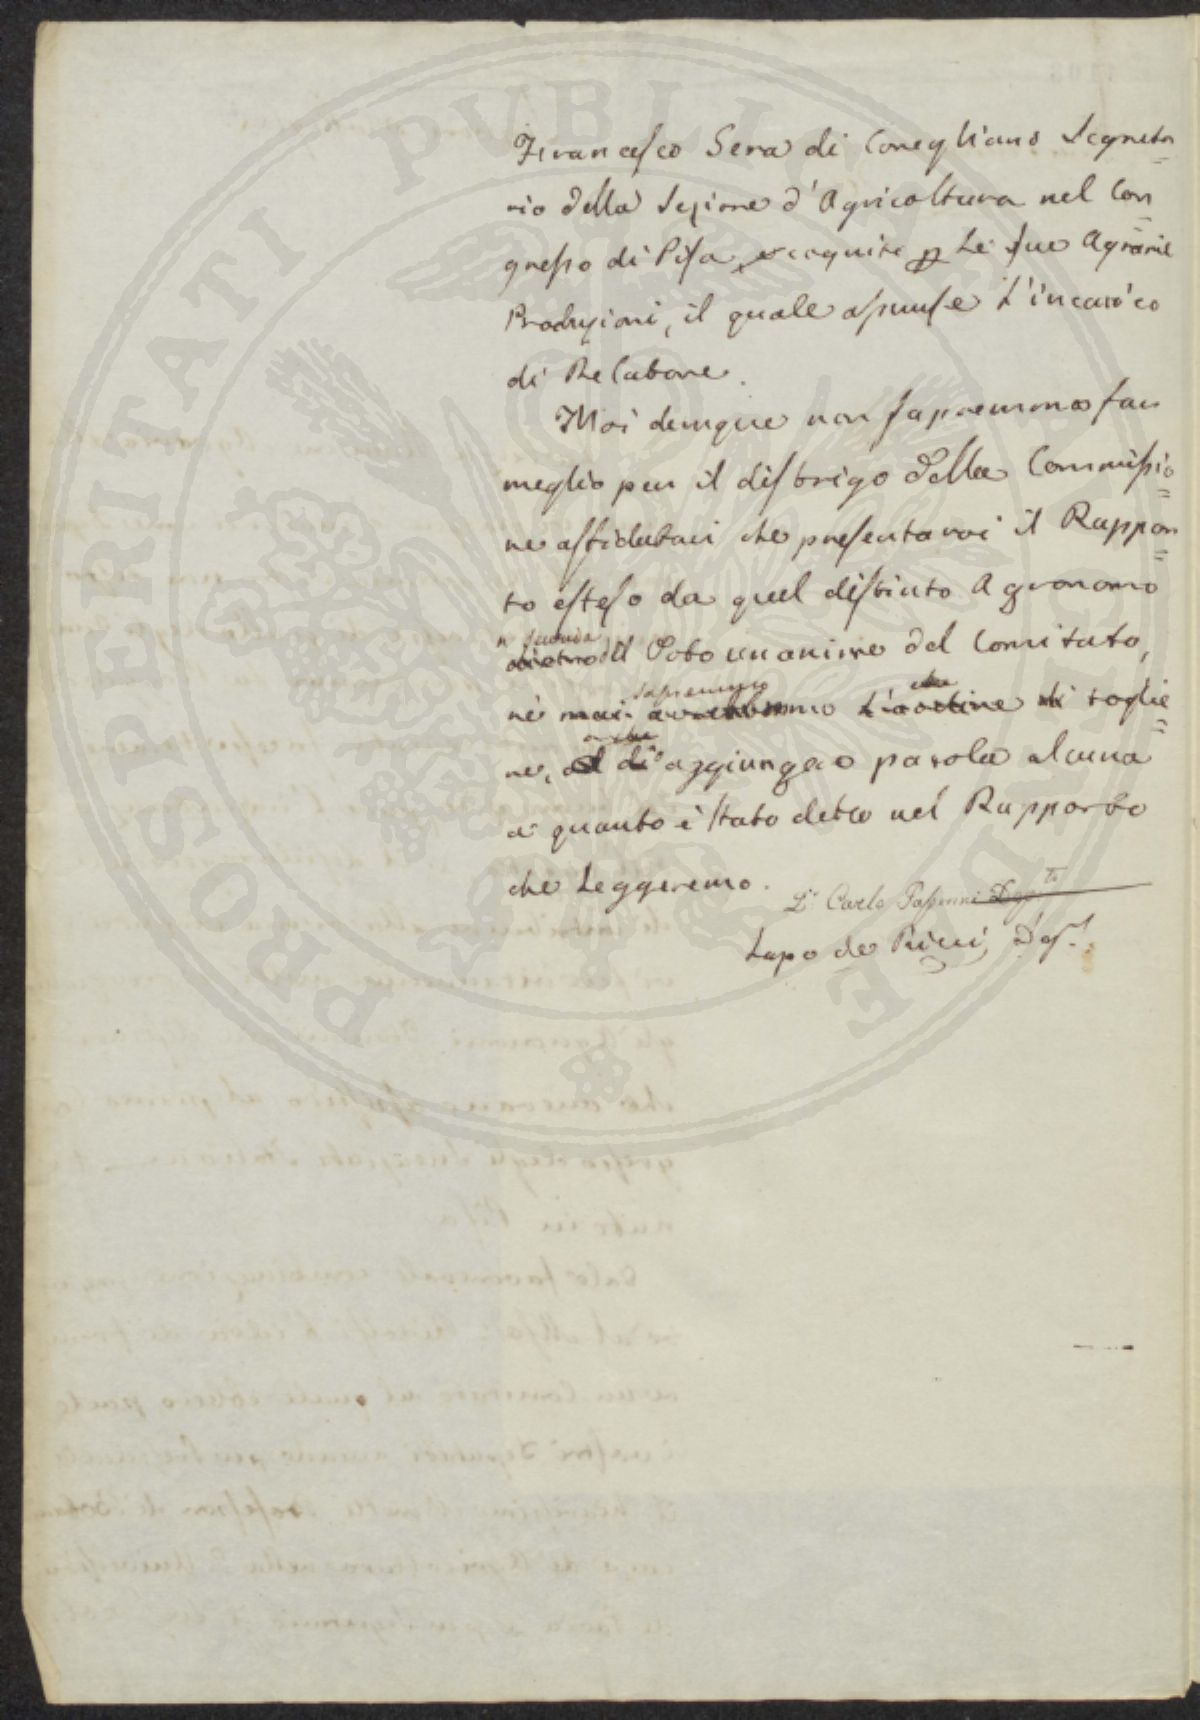 Francesco Gera di Conegliano Segreta=
rio della Sezione d'Agricoltura nel Con=
gresso di Pisa, e cognito p le sue Agrarie
Produzioni, il quale assunse l'incarico
di Relatore.
Noi dunque non sapremmo far
meglio per il disbrigo della Commissio=
ne affidataci che presentarvi il Rappor=
to esteso da quel distinto Agronomo
a seconda
dietro del Voto unanime del Comitato,
sapremmo
nè mai avremmo l'ardire di toglie=
re, od di aggiungere parola alcuna
a quanto è stato detto nel Rapporto
che leggeremo.
Dr Carlo Passerini Depto
Lapo de Ricci, Dep.
PROSPERITATI PUBLICAE AUGENDAE